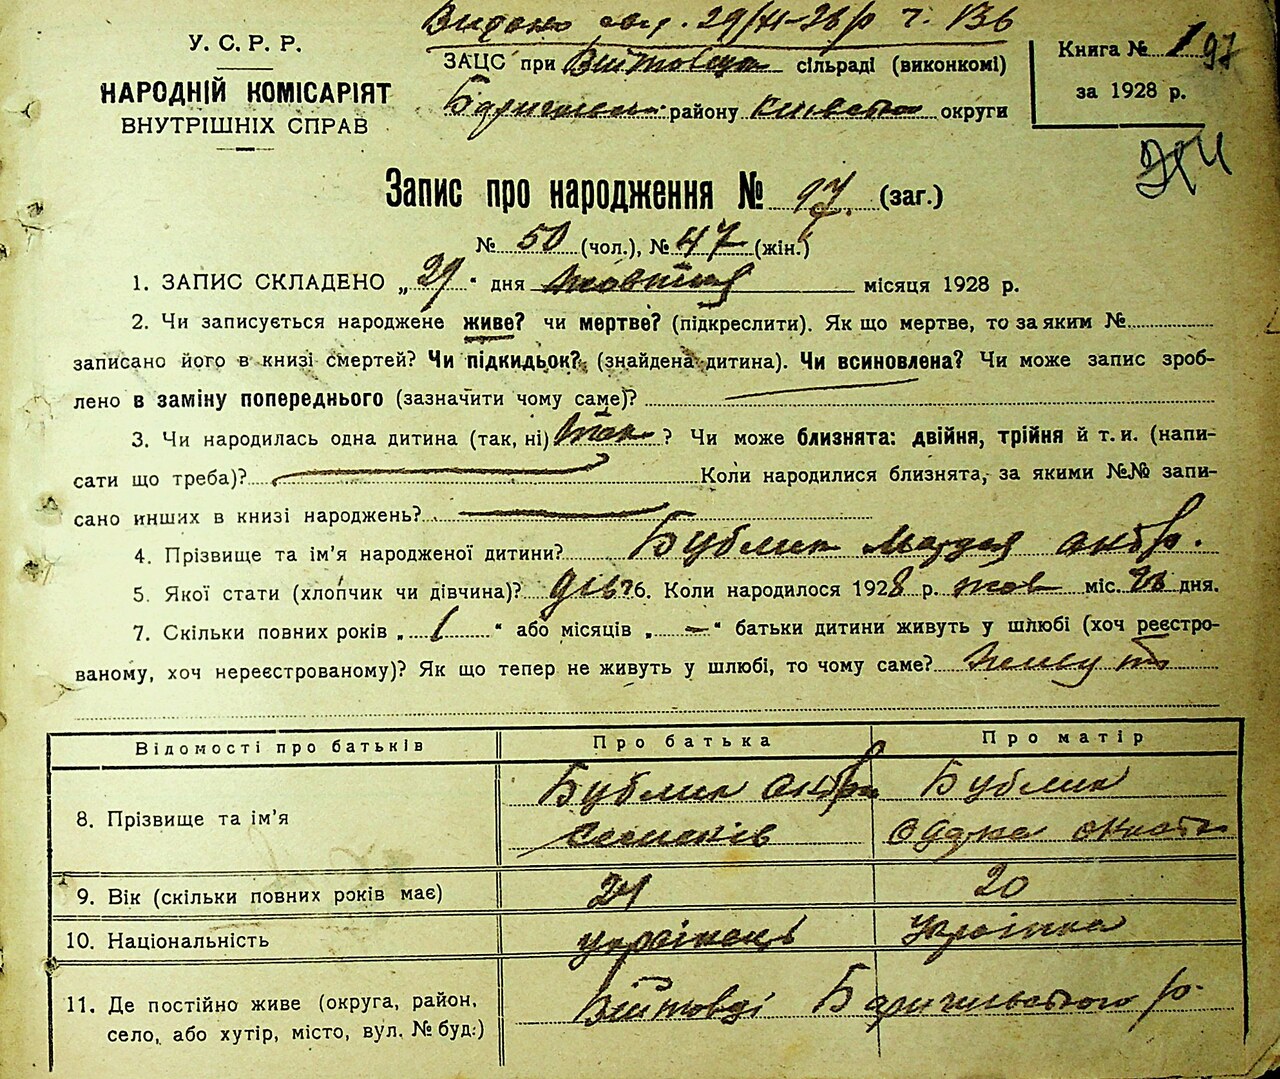 Видано 29/XI-28 р ч. 136
У. С. Р. Р.
НАРОДНІЙ КОМІСАРІЯТ
ВНУТРІШНІХ СПРАВ
ЗАЦС при сільраді (виконкомі)
району округи
Книга № 1 97
за 1928 р.
Запис про народження № 97. (заг.)
№ 50 (чол.), № 47 (жін.)
1. ЗАПИС СКЛАДЕНО „29" дня жовтня місяця 1928 р.
2. Чи записується народжене живе? чи мертве? (підкреслити). Як що мертве, то за яким №
записано його в книзі смертей? Чи підкидьок? (знайдена дитина). Чи всиновлена? Чи може запис зроб-
лено в заміну попереднього (зазначити чому саме)?
3. Чи народилась одна дитина (так, ні) так ? Чи може близнята: двійня, трійня й т. и. (напи-
сати що треба)? Коли народилися близнята, за якими №№ запи-
сано инших в книзі народжень?
4. Прізвище та ім'я народженої дитини? Бублик Магда
5. Якої стати (хлопчик чи дівчина)? дів 6. Коли народилося 1928 р. жов міс. дня.
7. Скільки повних років „ 1 " або місяців „ — " батьки дитини живуть у шлюбі (хоч реєстро-
ваному, хоч нереєстрованому)? Як що тепер не живуть у шлюбі, то чому саме? живуть
Відомості про батьків Про батька Про матір
8. Прізвище та ім'я Бублик Бублик
Семенів
9. Вік (скільки повних років має) 21 20
10. Національність українець Українка
11. Де постійно живе (округа, район, село, або хутір, місто, вул. № буд.) Війтовці Баришівського р.